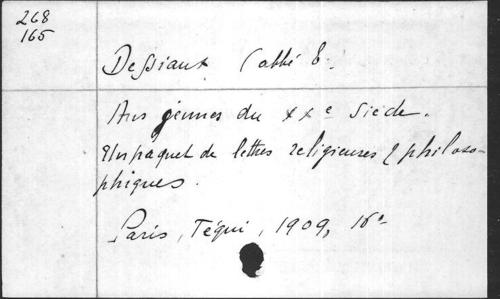 268
165
Dessiaux (abbé E.
Aux jeunes du XXe Siècle.
Un paquet de lettres religieuses & philoso-
phiques.
Paris, Téqui, 1909, 16°